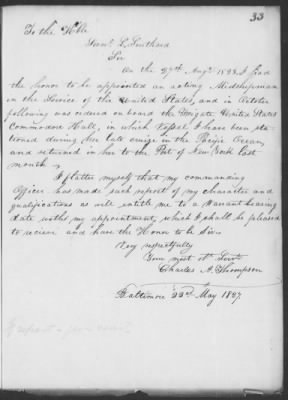 33
To the Honble
Saml. L. Southard
Sir
On the 29th Augt. 1823. I had
the honor to be appointed an acting Midshipman
in the Service of the United States, and in October
following was ordered on board the Frigate United States
Commodore Hull, in which Vessel I have been sta-
tioned during her late cruize in the Pacific Ocean,
and returned in her to the Port of New York last
month.
I flatter myself that my commanding
Officer has made such report of my character and
qualifications as will entitle me to a Warrant bearing
date with my appointment, which I shall be pleased
to recieve and have the Honor to be Sir.
Very respectfully
Your most obt Servt
Charles A. Thompson
Baltimore 22nd May 1827.